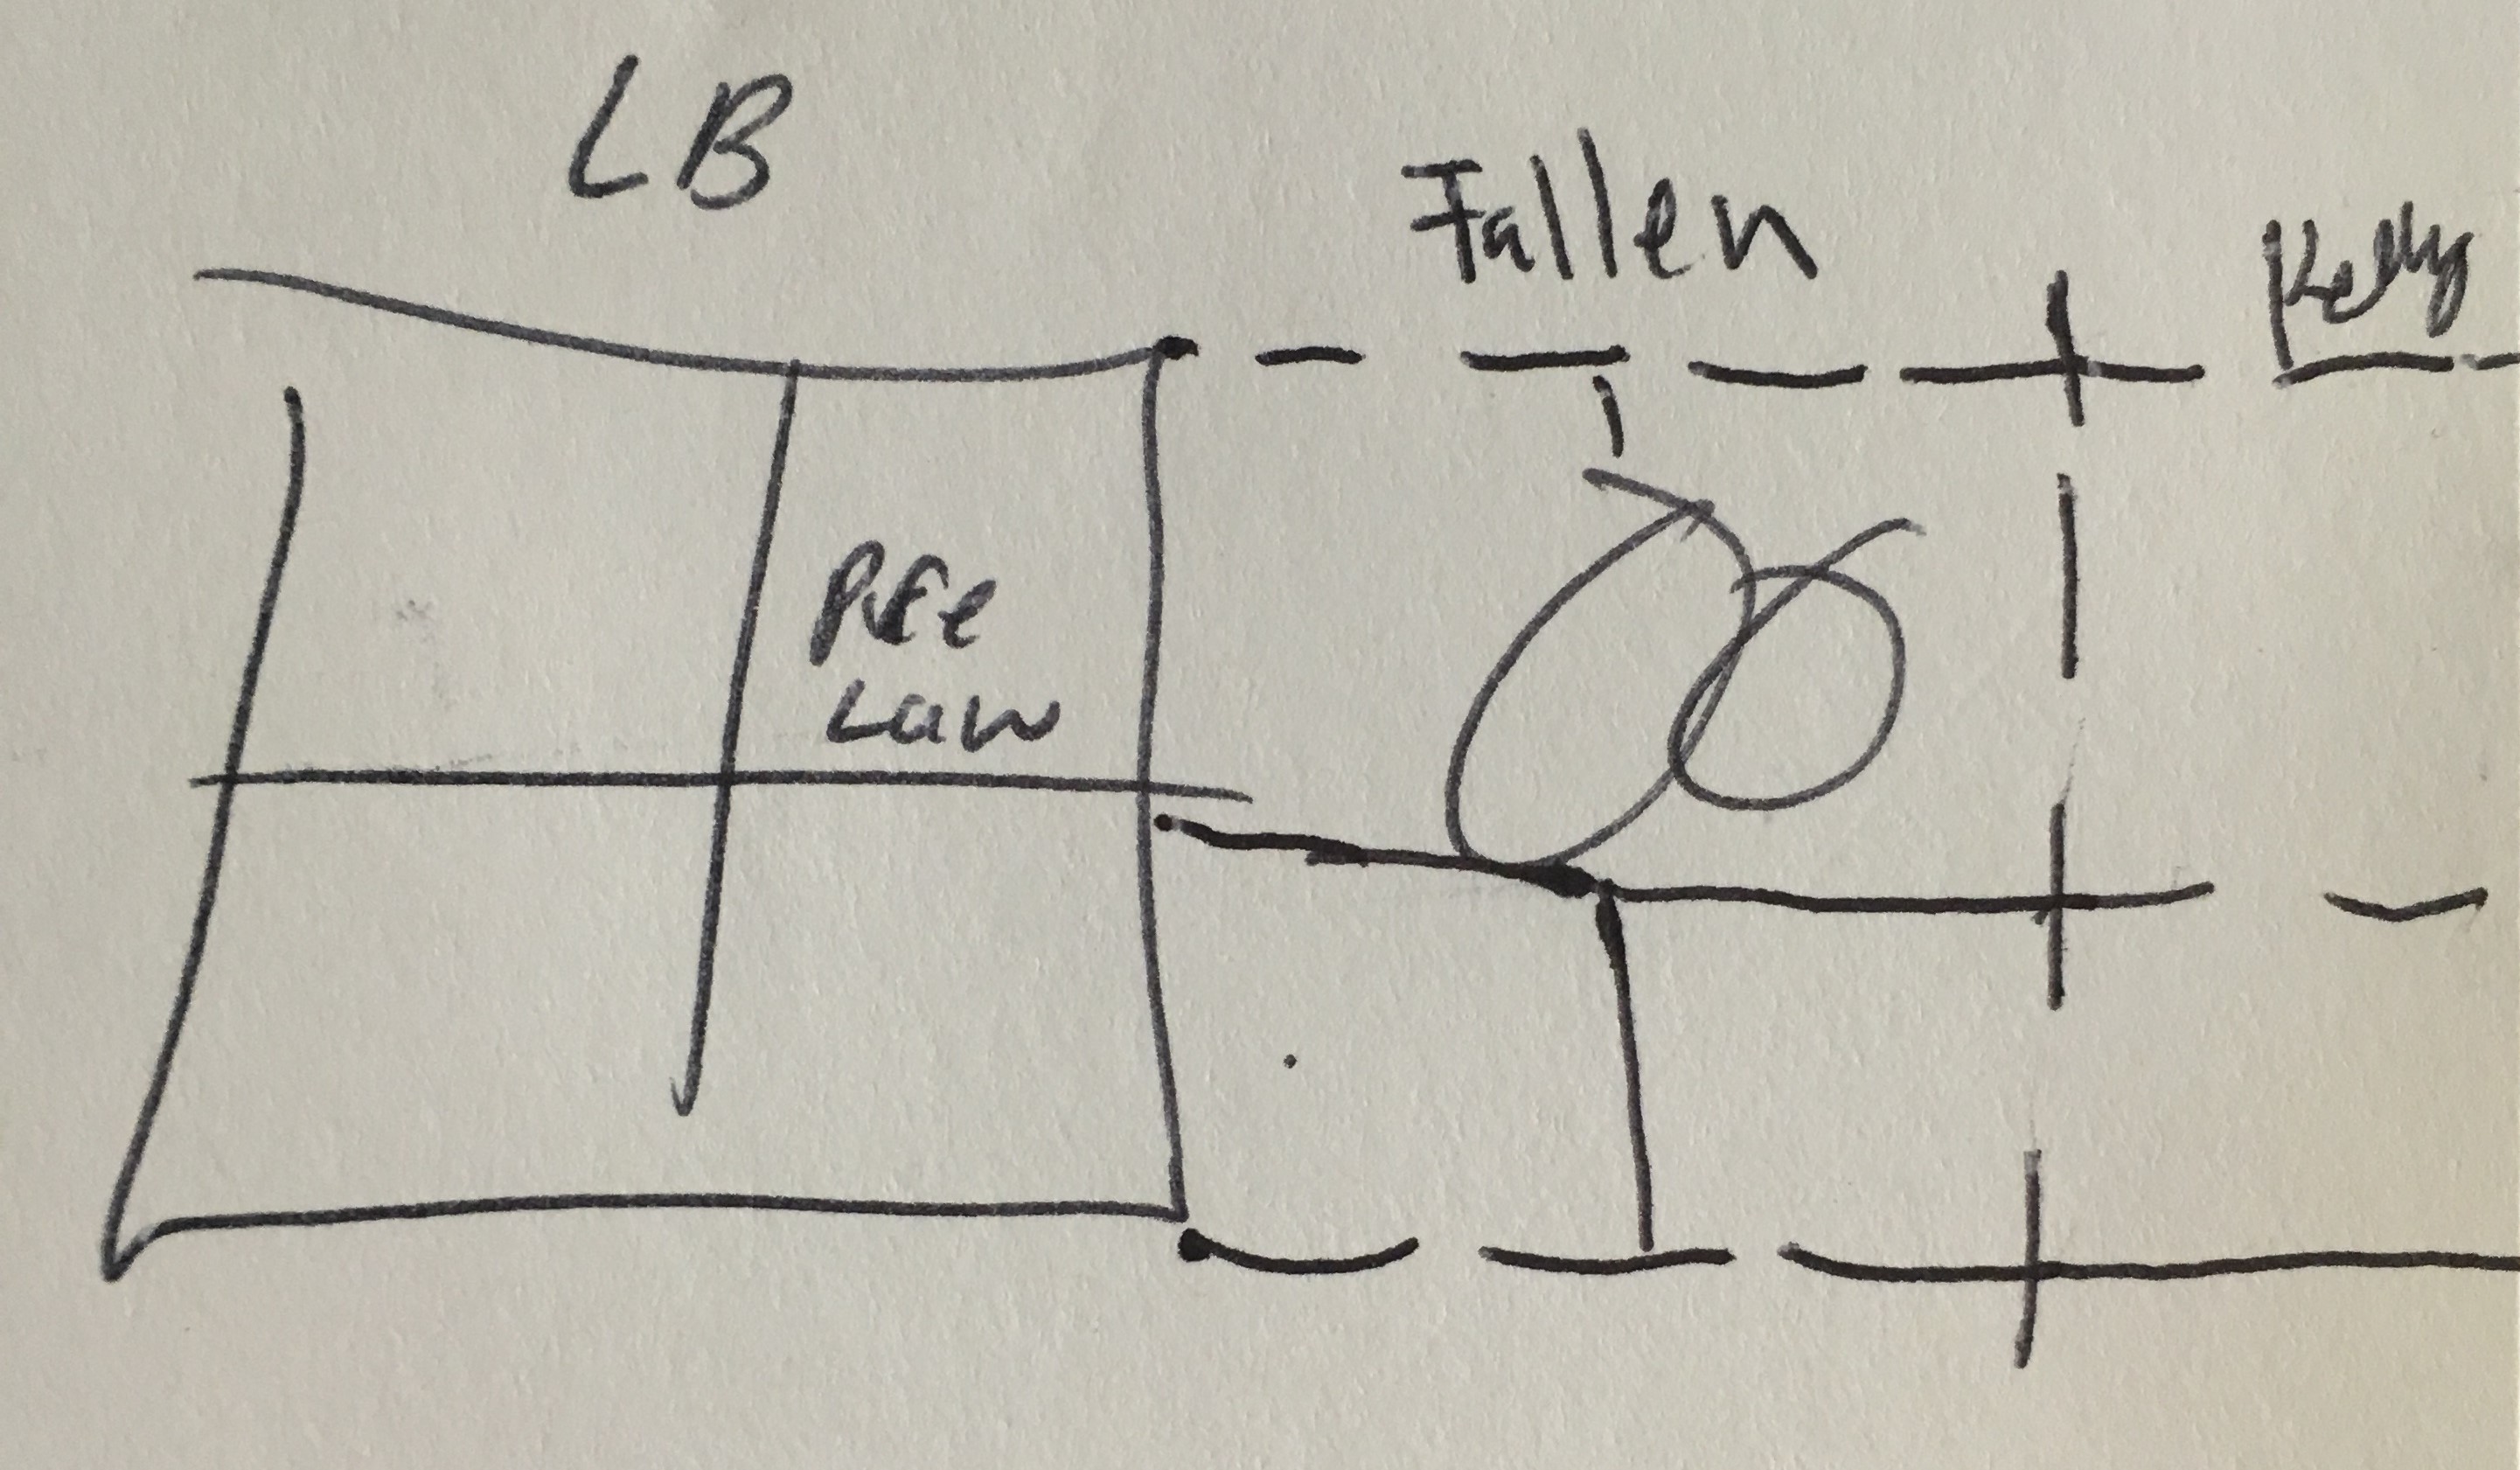 LB
Fallen
Kelly
PRE
LAW